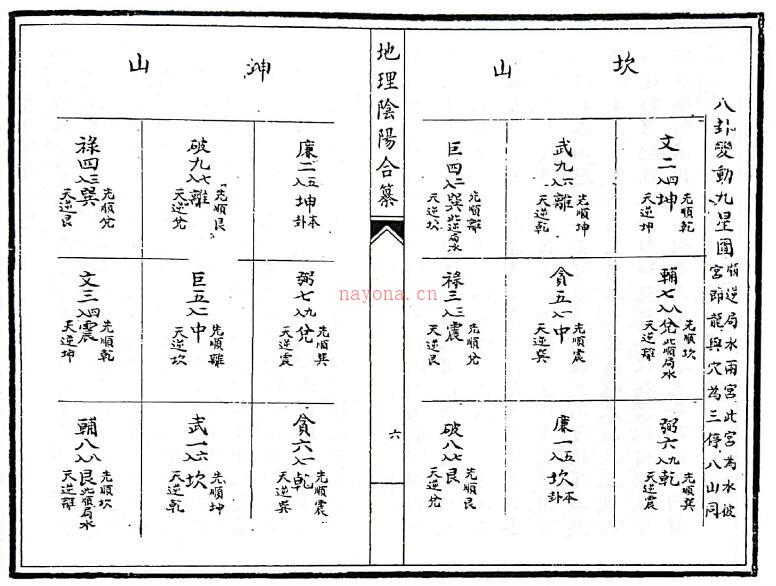 八卦變動九星圖 順逆局水兩宮此宮為水彼宮即龍與穴為三停八山同
坎山
文二四入坤 先順乾 天逆坤
輔七八入兌 先順坎 天逆離 此順局水
弼六九入乾 先順巽 天逆震
武九六入離 先順坤 天逆乾
貪五一入中 先順震 天逆巽
廉一五入坎 本卦
巨四二入巽 先順離 天逆坎 此逆局水
祿三三入震 先順兌 天逆艮
破八七入艮 先順艮 天逆兌
地理陰陽合纂
六
坤山
廉二五入坤 本卦
弼七九入兌 先順巽 天逆震
貪六一入乾 先順震 天逆巽
破九七入離 先順艮 天逆兌
巨五二入中 先順離 天逆坎
武一六入坎 先順坤 天逆乾
祿四三入巽 先順兌 天逆艮
文三四入震 先順乾 天逆坤
輔八八入艮 先順坎 天逆離 此順局水
nayona.cn